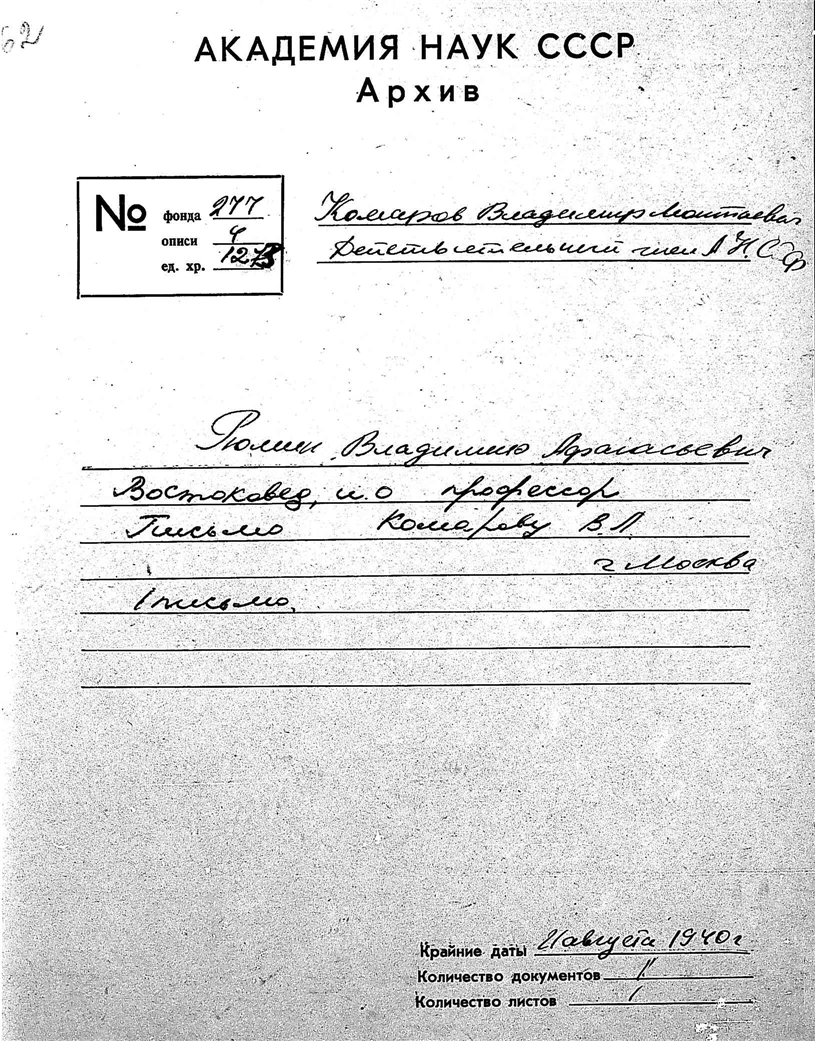 62
АКАДЕМИЯ НАУК СССР
Архив
№ фонда 277
описи 4
ед. хр.
Комаров Владимир Леонтьевич
Действительный член А Н С
Владимир Афанасьевич
Востоковед, и.о профессор
Письмо Комарову В.Л.
г Москва
1 письмо.
Крайние даты августа 1940 г
Количество документов 1
Количество листов 1